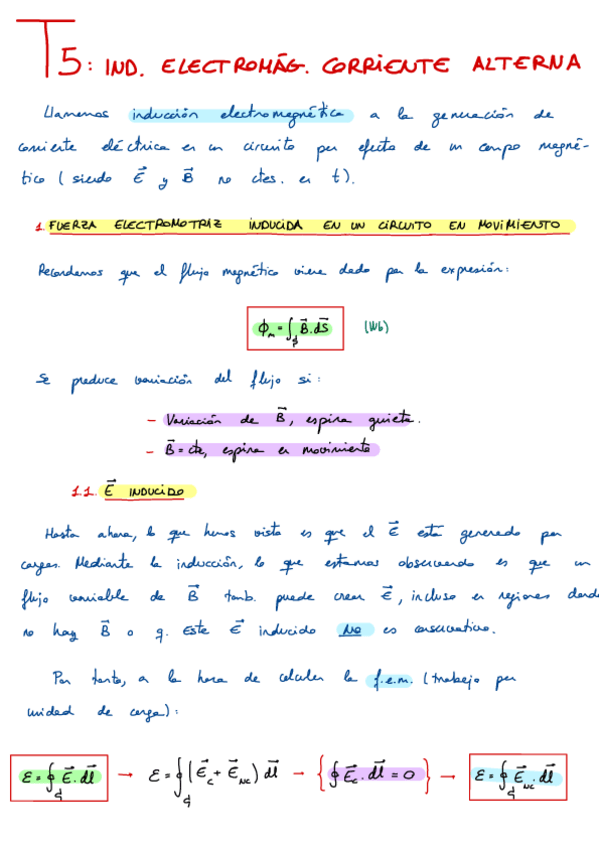 T5: IND. ELECTROMÁG. CORRIENTE ALTERNA
Llamamos inducción electromagnética a la generación de
corriente eléctrica en un circuito por efecto de un campo magné-
tico (siendo E⃗ y B⃗ no ctes. en t).
1. FUERZA ELECTROMOTRIZ INDUCIDA EN UN CIRCUITO EN MOVIMIENTO
Recordemos que el flujo magnético viene dado por la expresión:
ϕm = ∫ϕ B⃗·dS⃗ (Wb)
Se produce variación del flujo si:
- Variación de B⃗, espira quieta.
- B⃗ = cte, espira en movimiento
1.1. E⃗ INDUCIDO
Hasta ahora, lo que hemos visto es que el E⃗ está generado por
cargas. Mediante la inducción, lo que estamos observando es que un
flujo variable de B⃗ tamb. puede crear E⃗, incluso en regiones donde
no hay B⃗ o q. Este E⃗ inducido NO es conservativo.
Por tanto, a la hora de calcular la f.e.m. (trabajo por
unidad de carga):
ε = ∮ E⃗·dl⃗ → ε = ∮ (E⃗c + E⃗NC) dl⃗ → {∮ E⃗c·dl⃗ = 0} → ε = ∮ E⃗NC·dl⃗